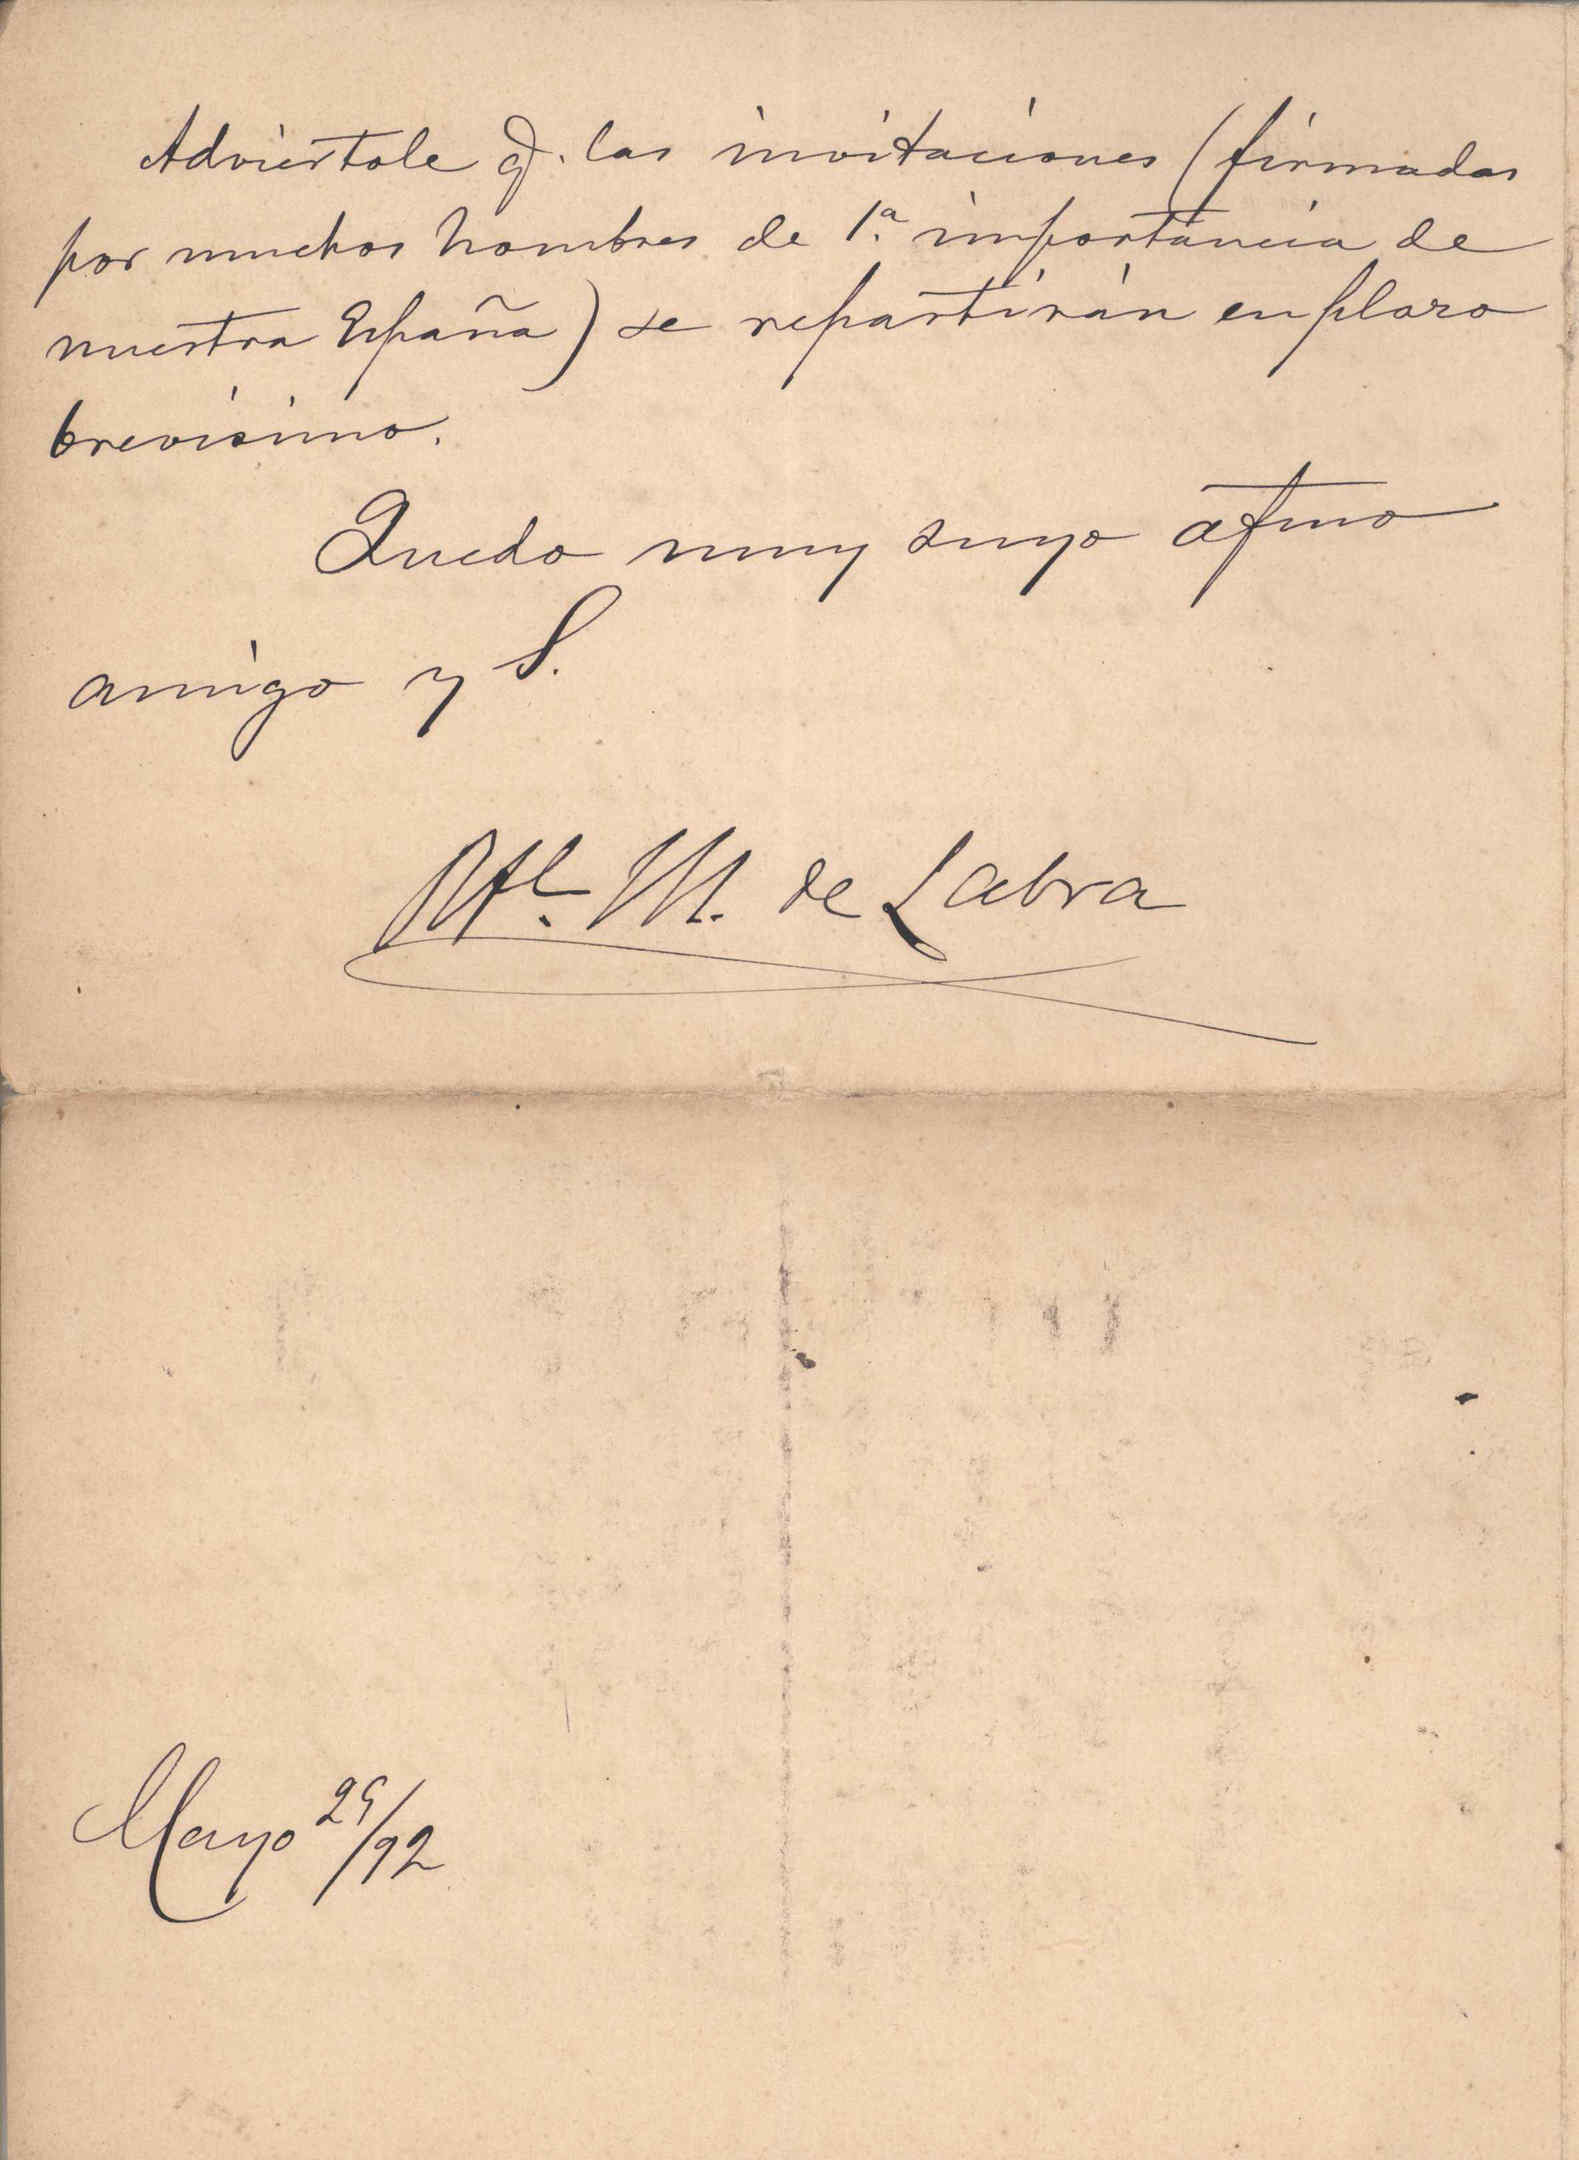 Adviertole q. las invitaciones (firmadas
por muchos hombres de 1.ª importancia de
nuestra España) se repartirán en plazo
brevisimo.
Quedo muy suyo afmo
amigo y S.
Rfl. M. de Labra
Mayo 29/92